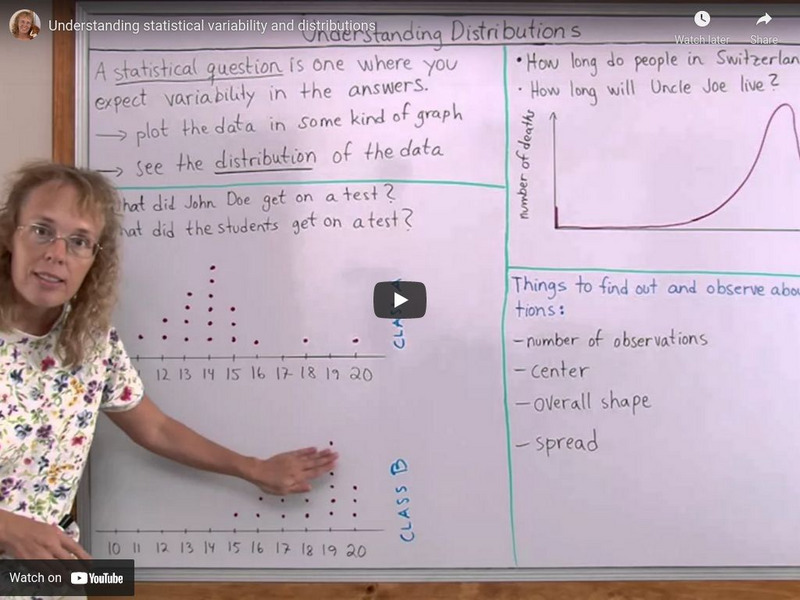 Understanding statistical variability and distributions
Watch later
Share
Understanding Distributions
A statistical question is one where you
expect variability in the answers.
→ plot the data in some kind of graph
→ see the distribution of the data
What did John Doe get on a test?
What did the students get on a test?
12 13 14 15 16 17 18 19 20
CLASS A
10 11 12 13 14 15 16 17 18 19 20
CLASS B
• How long do people in
• How long will Uncle Joe live?
number of deaths
Things to find out and observe
tions:
– number of observations
– center
– overall shape
– spread
Watch on YouTube